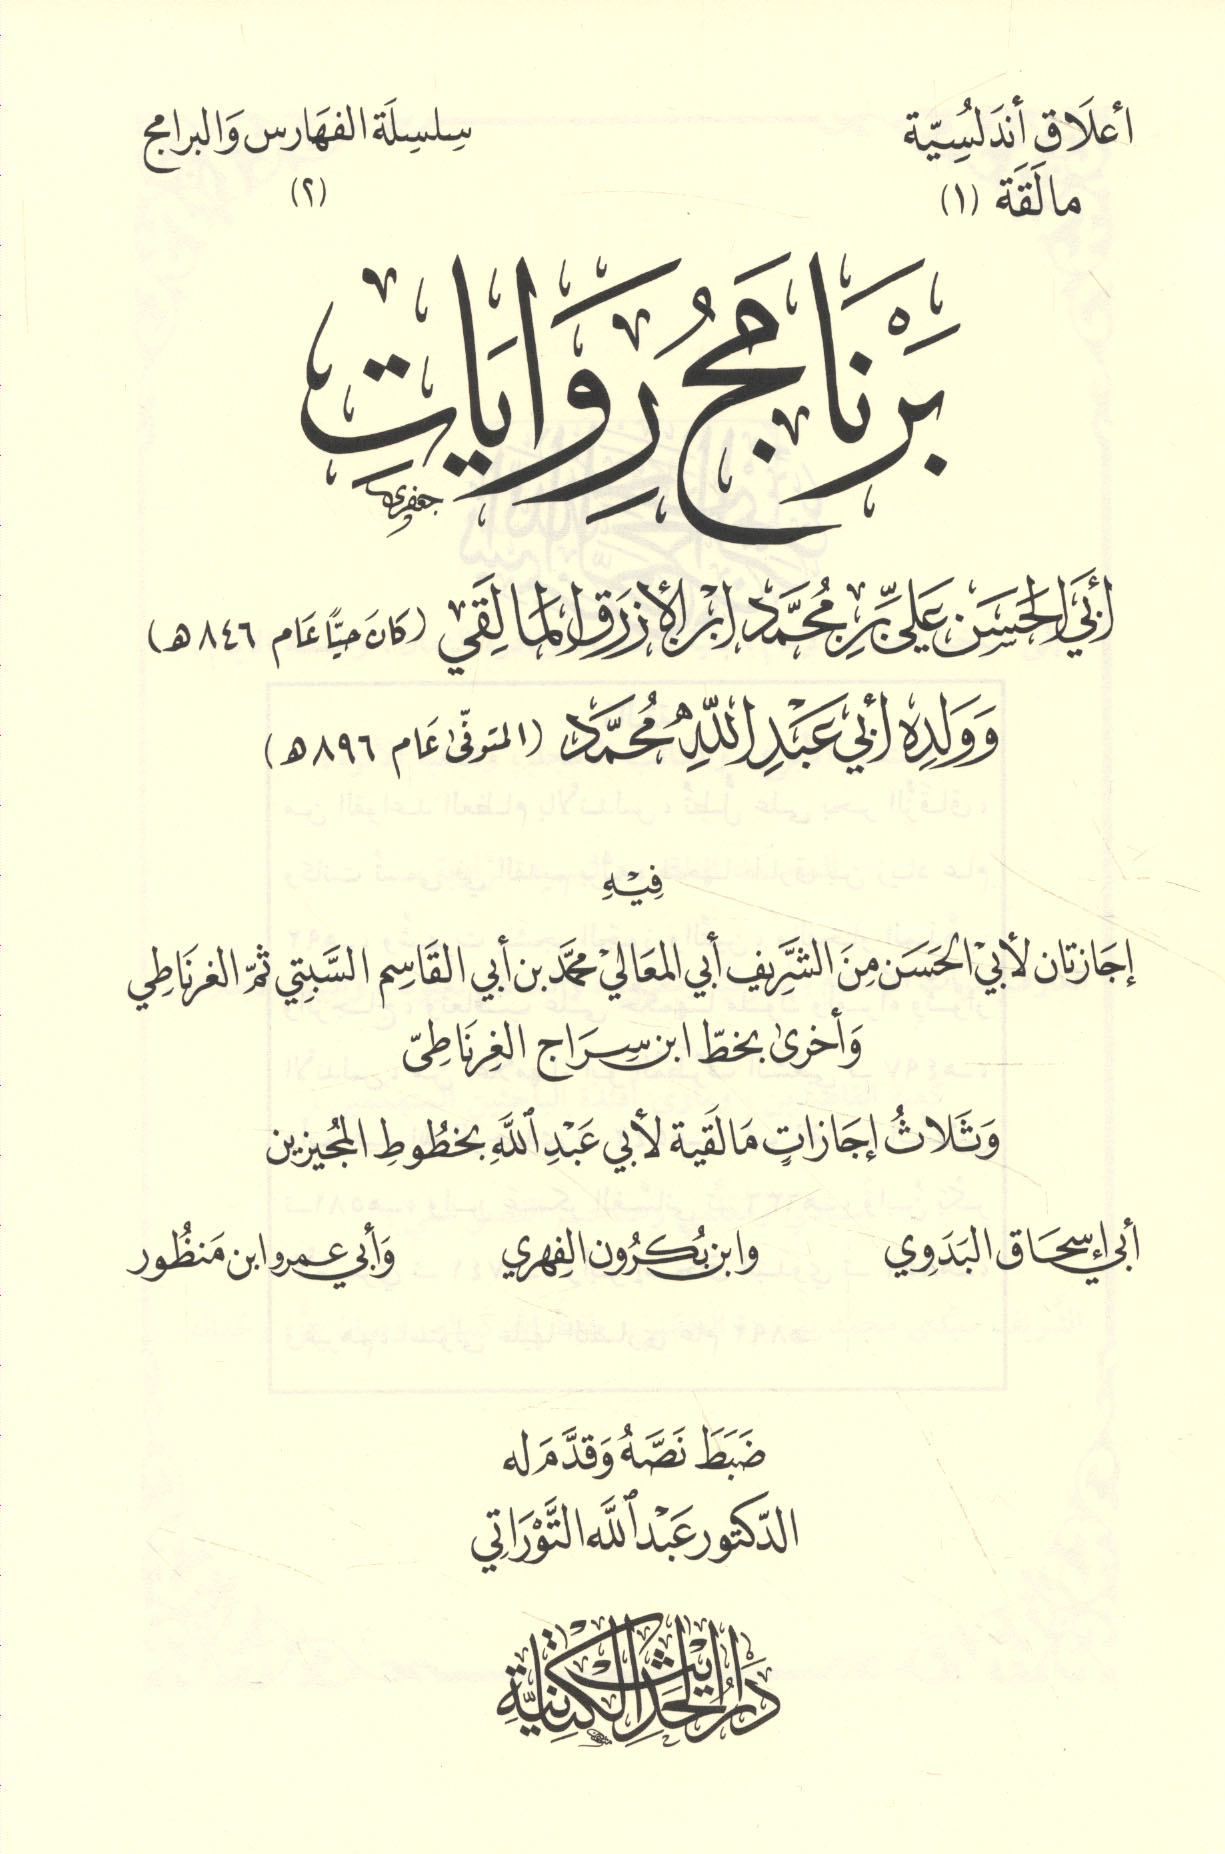 أعلَاق أندَلسِيّة
مالَقَة (١)
سِلسِلَة الفهَارس وَالبرامج
(٢)
بَرْنَامَجُ رِوَايَاتِ
جعفري
أَبِي الحَسَن عَلي بن مُحَمَّد ابن الأزرَق المَالَقِي (كانَ حيًّا عَام ٨٤٦ هـ)
وَوَلدِه أَبي عَبْدِ اللهِ مُحَمَّد (المتوفّى عَام ٨٩٦ هـ)
فِيْهِ
إجَازتان لأبي الحَسَن مِنَ الشَّرِيف أبي المعَالي محمَّد بن أبي القَاسِم السَّبتي ثمّ الغرنَاطِي
وَأخرىٰ بخطّ ابن سِرَاج الغِرنَاطِيّ
وَثَلاثُ إجَازاتٍ مَالَقِية لأبي عَبْدِ اللَّهِ بخطُوطِ المجُيزين
أبي إسحَاق البَدَوِي وابن بُكرُون الفِهري وَأبي عمرو ابن مَنظُور
ضَبَطَ نَصَّهُ وَقدَّمَ له
الدّكتور عَبْد اللَّه التَّوْرَاتِي
دَارُ الحَدِيث الكتَانِيَّة